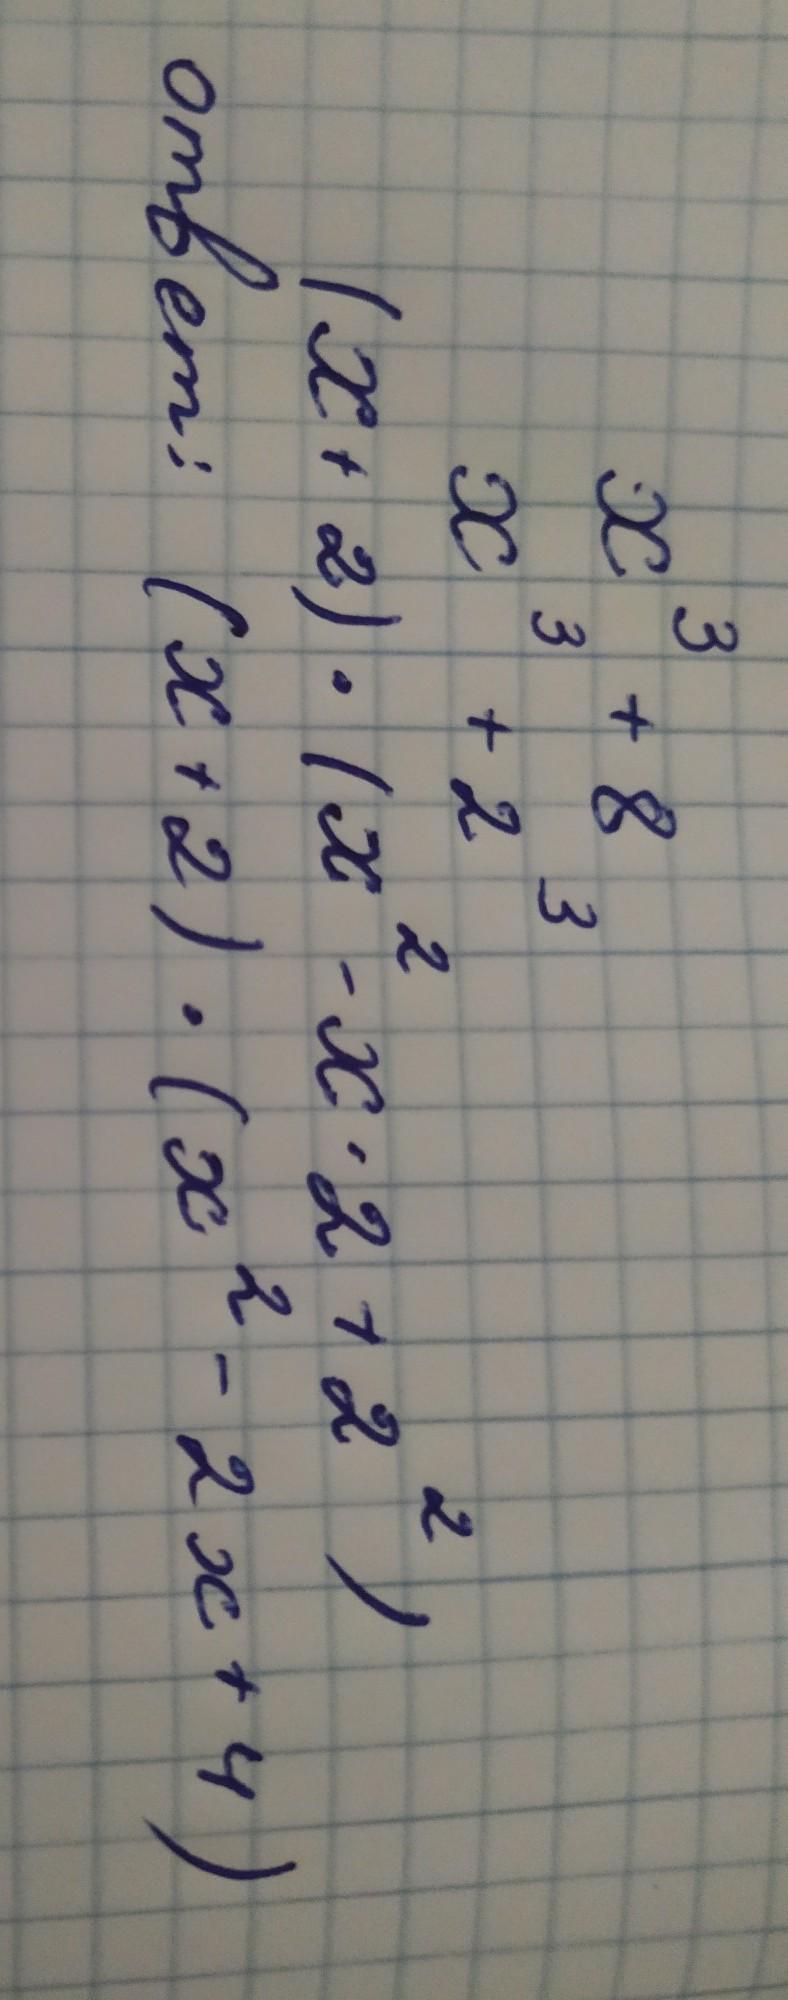 x³ + 8
x³ + 2³
(x + 2) · (x² - x · 2 + 2²)
ответ: (x + 2) · (x² - 2x + 4)